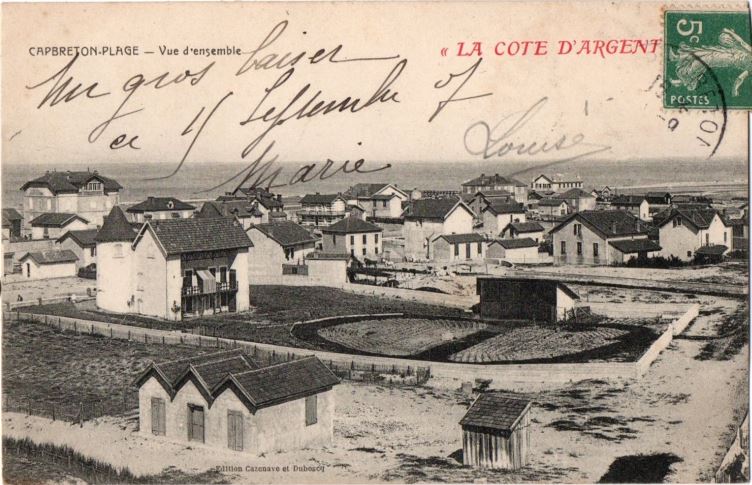 CAPBRETON-PLAGE — Vue d'ensemble
« LA COTE D'ARGENT
5c
POSTES
Un gros baiser
ce 15 Septembre 07
Marie
Louise
Edition Cazenave et Duboscq